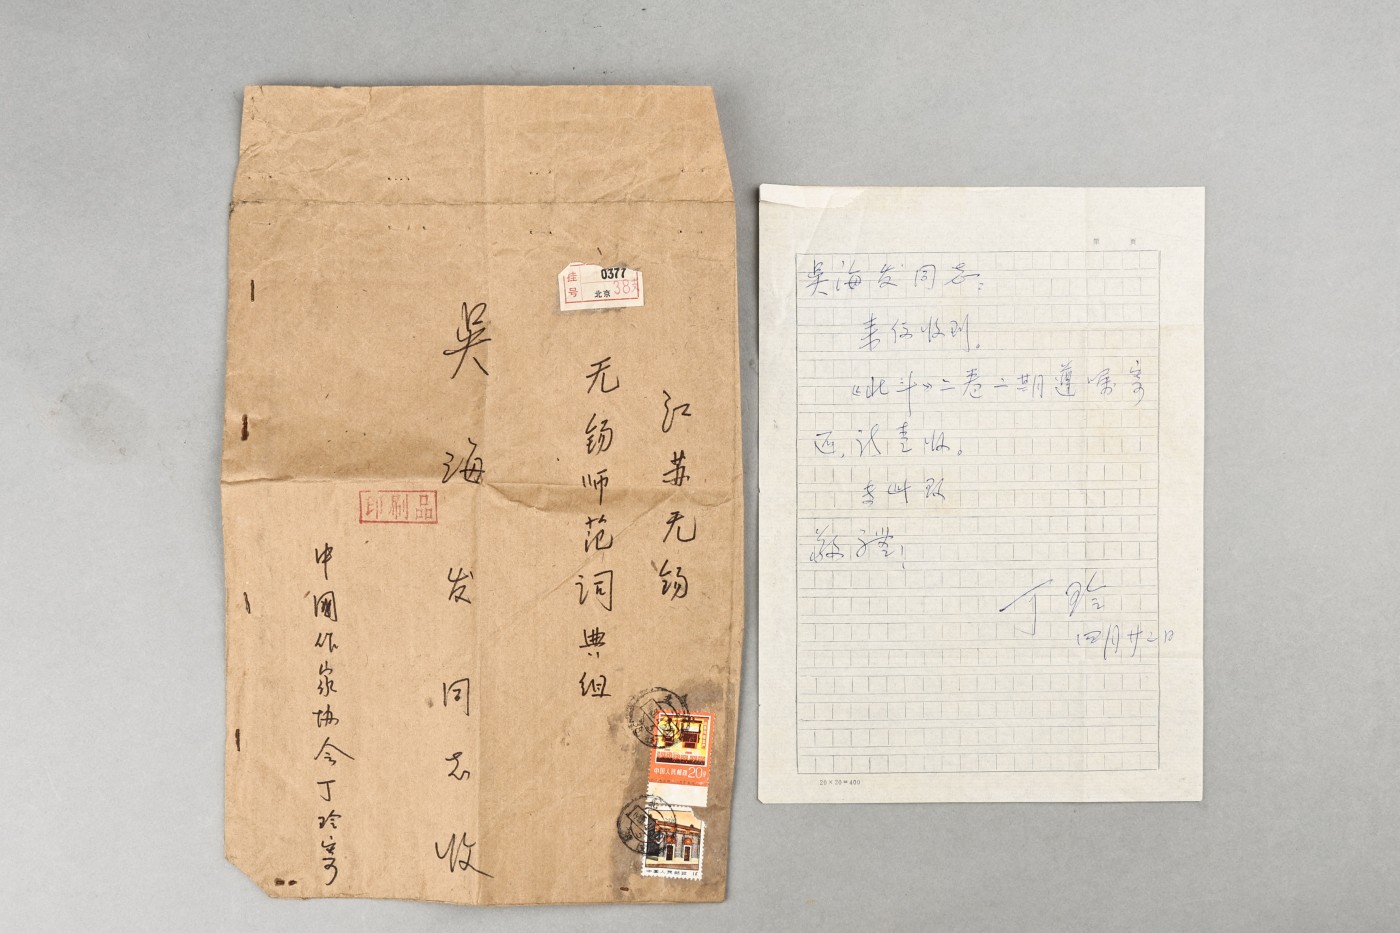 江苏无锡
无锡师范词典组
吴海发同志收
中國作家协会丁玲寄
印刷品
0377
北京
中国人民邮政 20分
中国人民邮政
吴海发同志:
来信收到。
《北斗》二卷二期遵嘱寄
还,请查收。
专此致
敬礼!
丁玲
四月廿二日